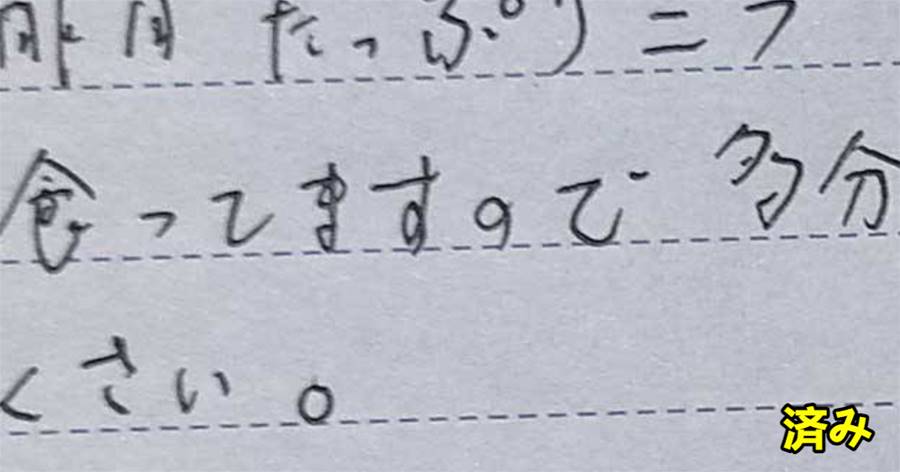 たっぷりニン
食ってますので 多分
ください。
済み